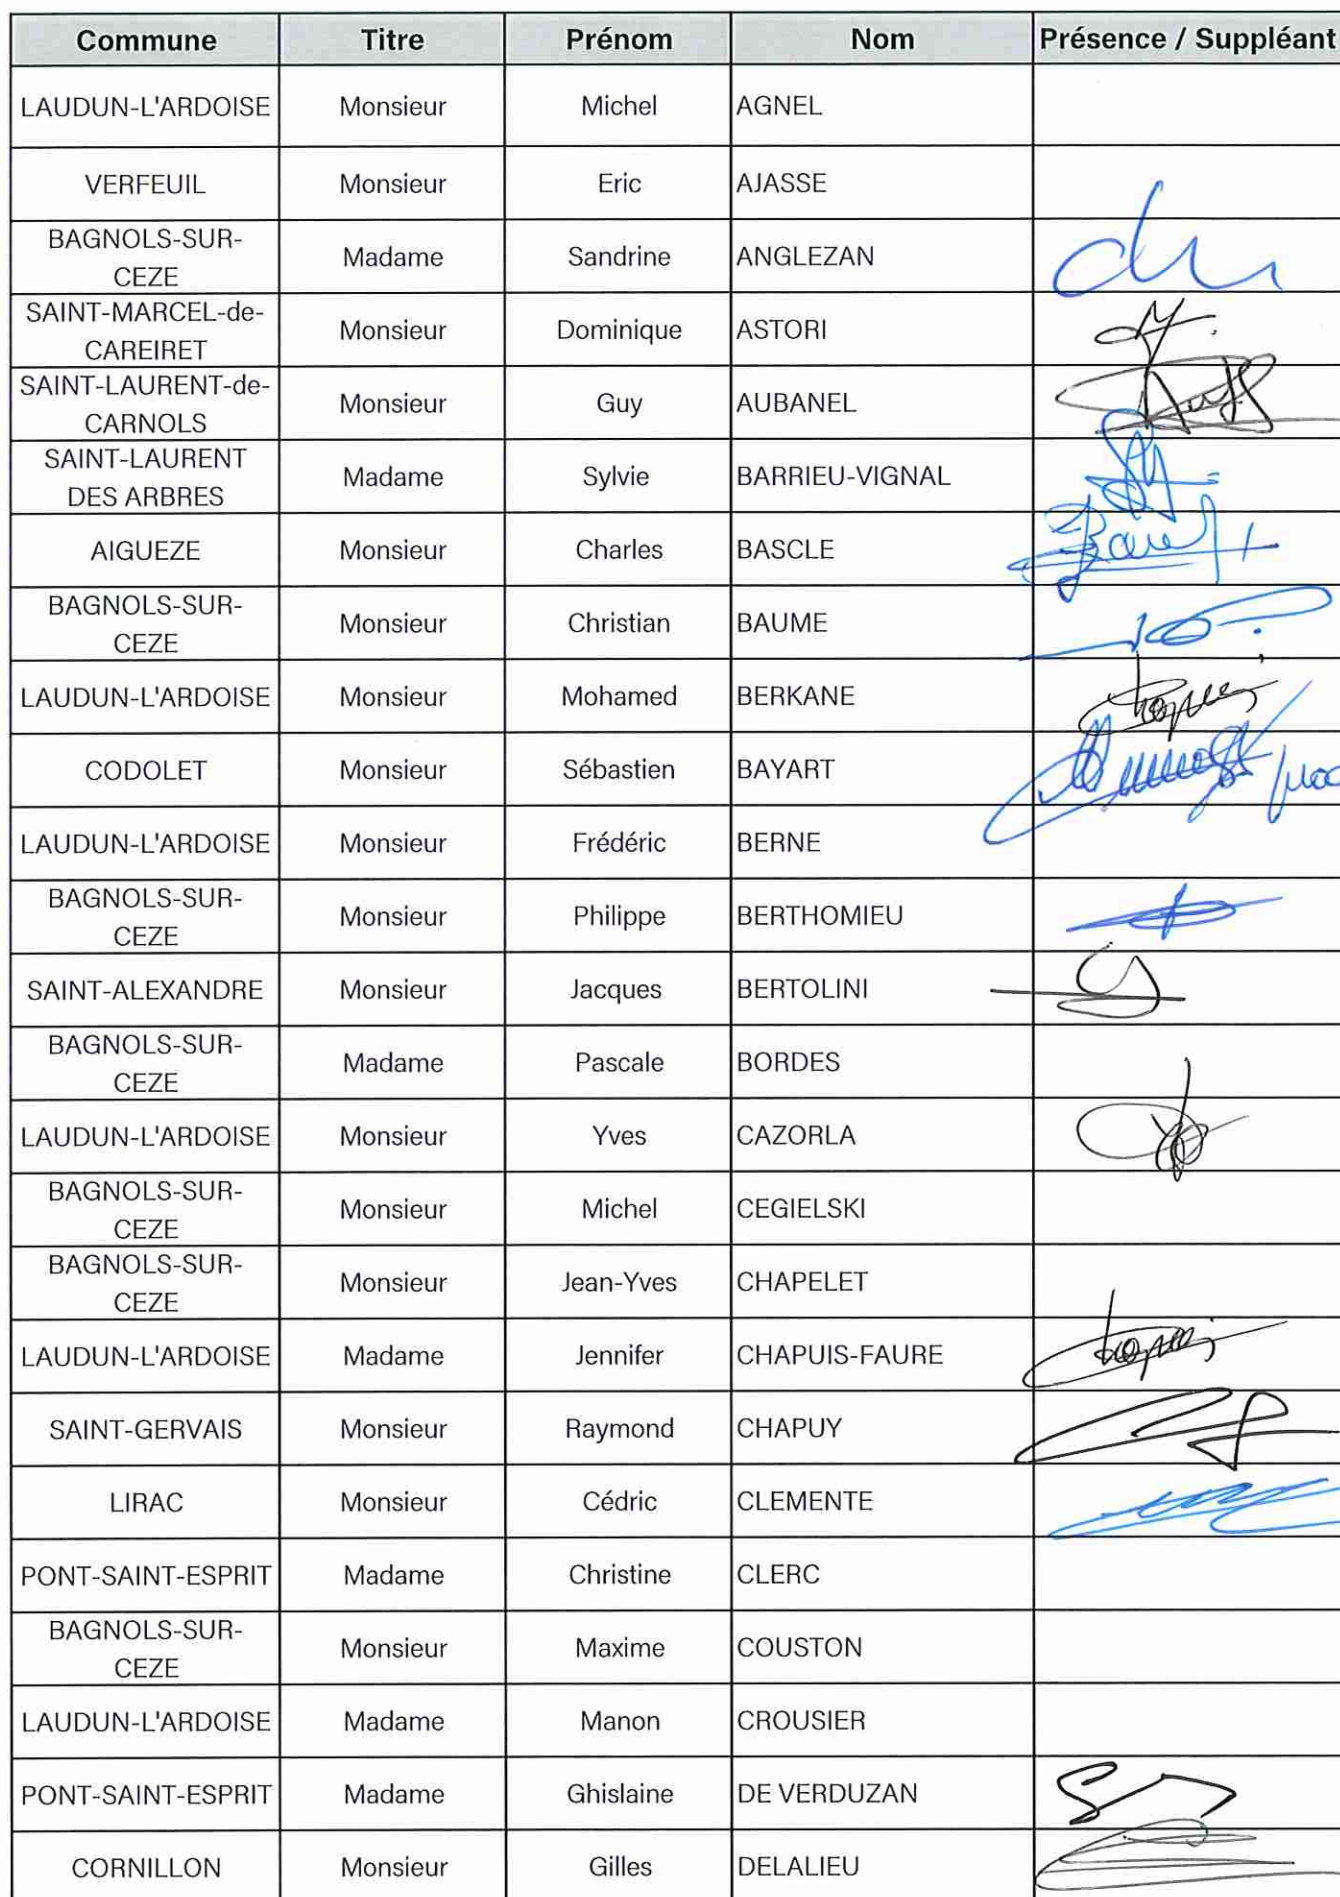 Commune Titre Prénom Nom Présence / Suppléant
LAUDUN-L'ARDOISE Monsieur Michel AGNEL
VERFEUIL Monsieur Eric AJASSE
BAGNOLS-SUR-
CEZE Madame Sandrine ANGLEZAN
SAINT-MARCEL-de-
CAREIRET Monsieur Dominique ASTORI
SAINT-LAURENT-de-
CARNOLS Monsieur Guy AUBANEL
SAINT-LAURENT
DES ARBRES Madame Sylvie BARRIEU-VIGNAL
AIGUEZE Monsieur Charles BASCLE
BAGNOLS-SUR-
CEZE Monsieur Christian BAUME
LAUDUN-L'ARDOISE Monsieur Mohamed BERKANE
CODOLET Monsieur Sébastien BAYART
LAUDUN-L'ARDOISE Monsieur Frédéric BERNE
BAGNOLS-SUR-
CEZE Monsieur Philippe BERTHOMIEU
SAINT-ALEXANDRE Monsieur Jacques BERTOLINI
BAGNOLS-SUR-
CEZE Madame Pascale BORDES
LAUDUN-L'ARDOISE Monsieur Yves CAZORLA
BAGNOLS-SUR-
CEZE Monsieur Michel CEGIELSKI
BAGNOLS-SUR-
CEZE Monsieur Jean-Yves CHAPELET
LAUDUN-L'ARDOISE Madame Jennifer CHAPUIS-FAURE
SAINT-GERVAIS Monsieur Raymond CHAPUY
LIRAC Monsieur Cédric CLEMENTE
PONT-SAINT-ESPRIT Madame Christine CLERC
BAGNOLS-SUR-
CEZE Monsieur Maxime COUSTON
LAUDUN-L'ARDOISE Madame Manon CROUSIER
PONT-SAINT-ESPRIT Madame Ghislaine DE VERDUZAN
CORNILLON Monsieur Gilles DELALIEU